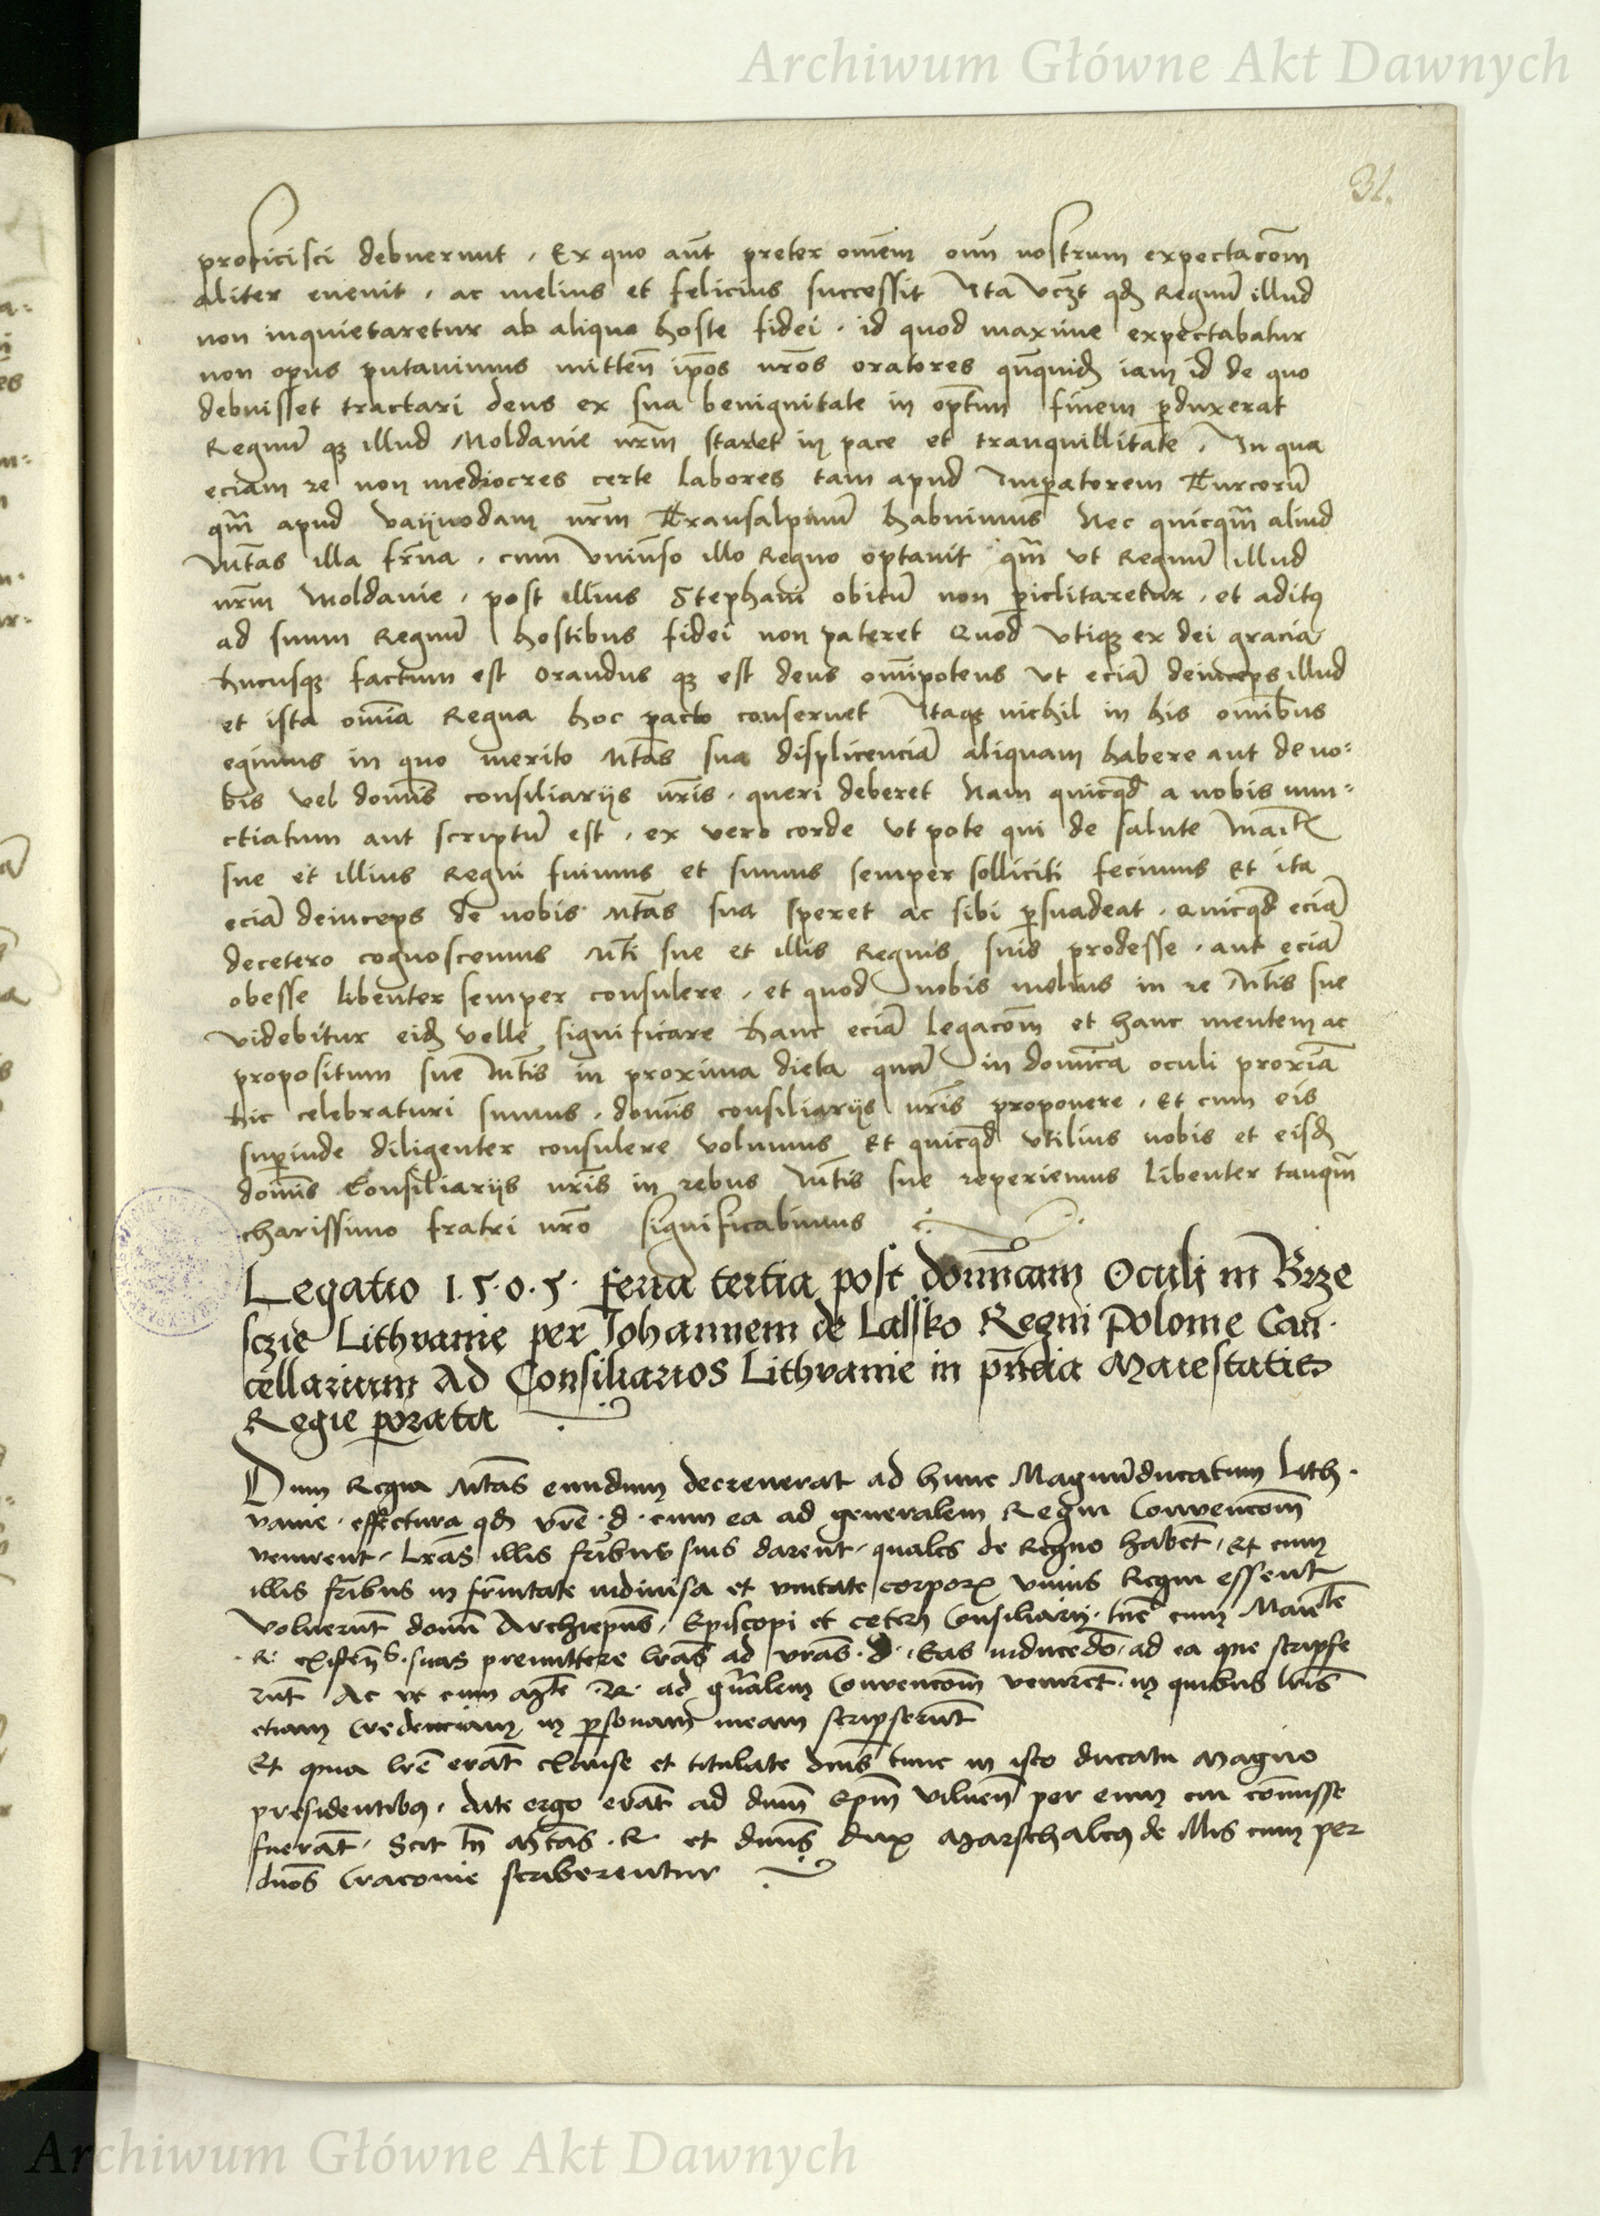 Archiwum Główne Akt Dawnych
31.
proficisci debuerunt . Ex quo aūt preter omēm om̄ nostrum expectacōm
aliter evenit . ac melius et felicius successit Ita vcꝫt qđ Regnū illud
non inquietaretur ab aliquo hoste fidei . id quod maxime expectabatur
non opus putavimus mitteñ ip̄os nr̄os oratores qn̄quid̄ iam id de quo
debuisset tractari deus ex sua benignitate in opt̄um finem p̱duxerat
Regnū qꝫ illud Moldavie nr̄m staret in pace et tranquillitate . In qua
eciam re non mediocres certe labores tam apud Imp̱atorem Turcorū
qm̄ apud vayvodam nr̄m Transalpinū habuimus Nec quicqm̄ aliud
Mt̄as illa fr̄na . cum univ̄so illo Regno optavit qm̄ ut Regnū illud
nr̄m Moldavie . post illius Stephani obitū non p̱iclitaretur . et aditꝰ
ad suum Regnū hostibus fidei non pateret Quod utiqꝫ ex dei gracia
hucusqꝫ factum est Orandus qꝫ est deus om̄ipotens ut eciā deinceps illud
et ista om̄ia Regna hoc pacto conservet Itaqꝫ nichil in his om̄ibus
egimus in quo merito Mt̄as sua displicenciā aliquam habere aut de no⸗
bis vel domīs consiliarijs nr̄is . queri deberet Nam quicqđ a nobis nun⸗
ctiatum aut scriptū est . ex vero corde ut pote qui de salute Mait̄
sue et illius Regni fuimus et sumus semper solliciti fecimus Et ita
eciā deinceps de nobis Mt̄as sua speret ac sibi p̱suadeat . Quicqđ eciā
decetero cognoscemus Mt̄i sue et illis Regnis suis prodesse . aut eciā
obesse libenter semper consulere . et quod nobis melius in re Mt̄is sue
videbitur eid̄ velle significare Hanc eciā legacōm et hanc mentem ac
propositum sue Mt̄is in proxima dieta quā in domīca oculi proxīa
hic celebraturi sumus . domīs consiliarijs nr̄is proponere . Et cum eis
sup̱inde diligenter consulere volumus Et quicqđ utilius nobis et eisd̄
domīs Consiliarijs nr̄is in rebus Mt̄is sue reperiemus libenter tanqm̄
charissimo fratri nr̄o significabimus
Legatio 1.5.0.5. feria tertia post domīcam Oculi in Brze
sczie Lithvanie per Johannem de Lassko Regni Polonie Can.
cellarium Ad Consiliarios Lithvanie in pn̄cia Maiestatis
Regie porata
Dum Regia Mt̄as eundum decreverat ad hunc Magnūducatum Lith.
vanie . effectura qđ vr̄e . d . cum ea ad generalem Regni Convencōm
venirent . lr̄as illis fr̄ibus suis darent . quales de Regno habēt . Et cum
illis fr̄ibus in fr̄nitate indivisa et unitate corporꝭ unius Regni essent
Voluerūt domī Archiep̄us . Episcopi et ceteri Consiliarij . tūc cum Maie̅te
. R. existen̄ . suas premittere lr̄as ad vr̄as . d . Eas inducēdo . ad ea que scripse
rūt Ac ut cum Mt̄e . R . ad gn̄alem Convencōm venirēt . in quibus lr̄is
etiam Credenciam in p̱sonam meam scripserūt
Et quia lr̄e erāt clause et titulate dn̄is tunc in isto ducatu Magno
presidentibꝰ . date ergo erāt ad dn̄m Ep̄m Vilneñ per eum cui cōmisse
fuerāt . Scit tn̄ Mt̄as . R . et dn̄us dux Marschalcꝰ de illis cum per
dn̄os Cracovie scriberentur
Archiwum Główne Akt Dawnych